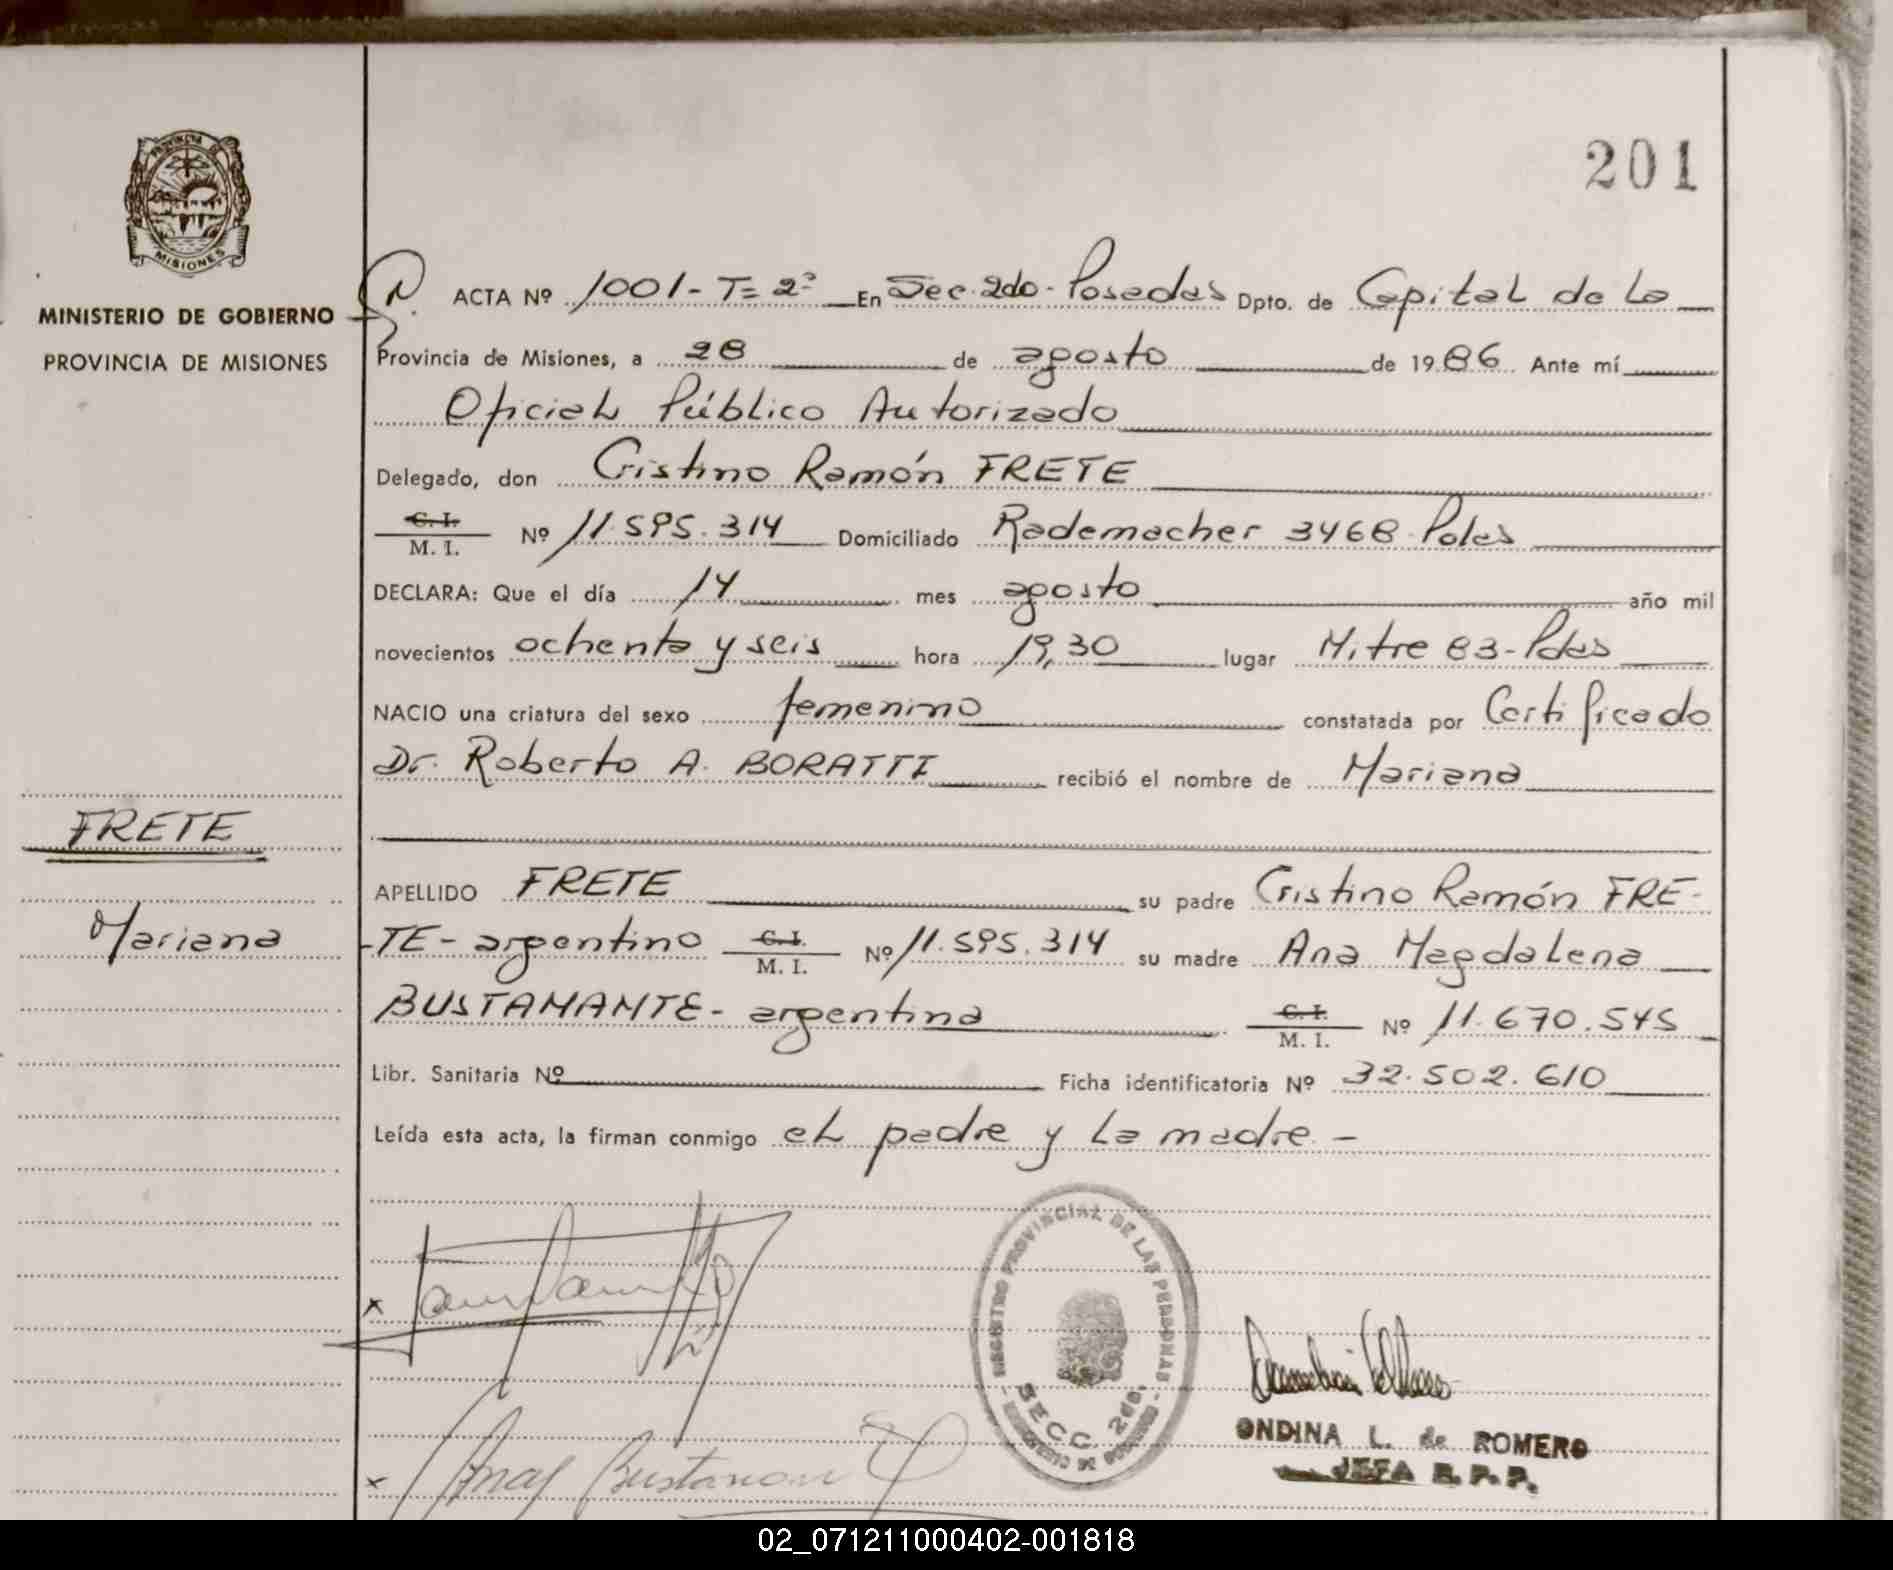 201
PROVINCIA DE
MISIONES
MINISTERIO DE GOBIERNO
PROVINCIA DE MISIONES
ACTA Nº 1001 - T= 2º En Sec. 2do - Posadas Dpto. de Capital de La
Provincia de Misiones, a 28 de agosto de 1986. Ante mí
Oficial Público Autorizado
Delegado, don Cristino Ramón FRETE
C. I. M. I. Nº 11.595.314 Domiciliado Rademacher 3468 - Pdas
DECLARA: Que el día 14 mes agosto año mil
novecientos ochenta y seis hora 19,30 lugar Mitre 83 - Pdas
NACIO una criatura del sexo femenino constatada por Certificado
Dr. Roberto A. BORATTI recibió el nombre de Mariana
FRETE
Mariana
APELLIDO FRETE su padre Cristino Ramón FRE-
-TE - argentino C. I. M. I. Nº 11.595.314 su madre Ana Magdalena
BUSTAMANTE - argentina C. I. M. I. Nº 11.670.545
Libr. Sanitaria Nº Ficha identificatoria Nº 32.502.610
Leída esta acta, la firman conmigo el padre y la madre. -
REGISTRO PROVINCIAL DE LAS PERSONAS
SECC. 2da.
x
x Ana Bustaman
ONDINA L. de ROMERO
JEFA R. P. P.
02_071211000402-001818